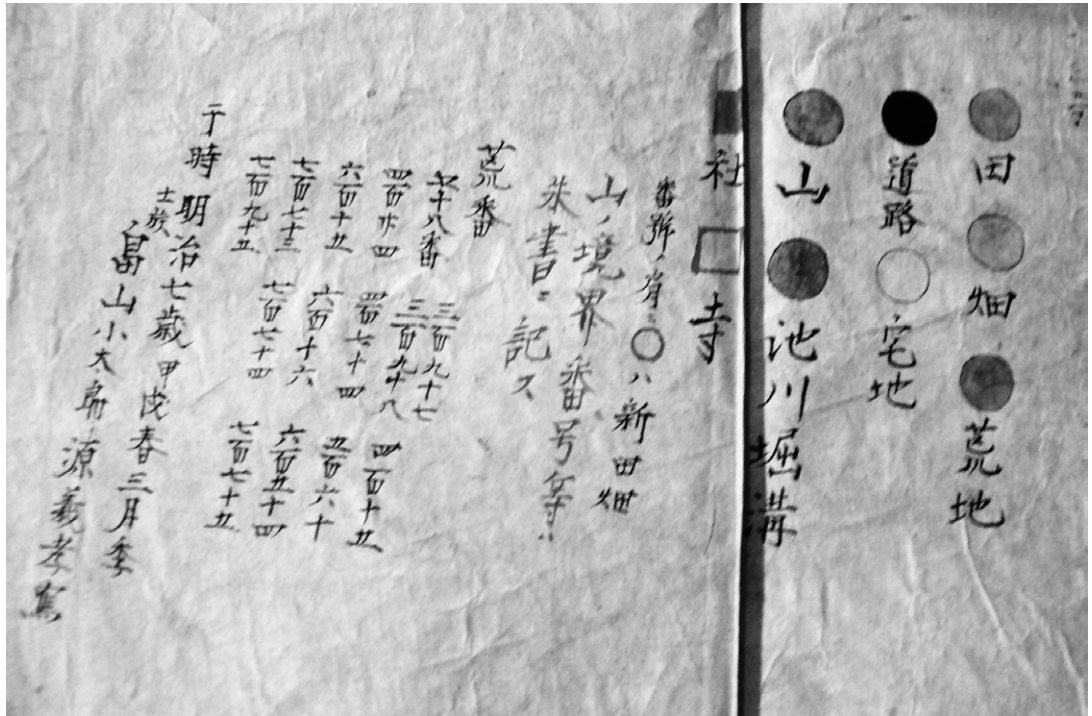 田 畑 荒地
道路 宅地
山 池川堀溝
社 寺
番號ノ有ニ○ハ新田畑
山ノ境界番号等ハ
朱書ニ記ス
荒番
十八番 三百九十七
四百廿四 三百九十八 四百十五
六百十五 四百七十四 五百六十
七百七十三 六百十六 六百五十四
七百九十五 七百七十四 七百七十五
于時明治七歳甲戌春三月季
士族 畠山小太郎源義孝寫